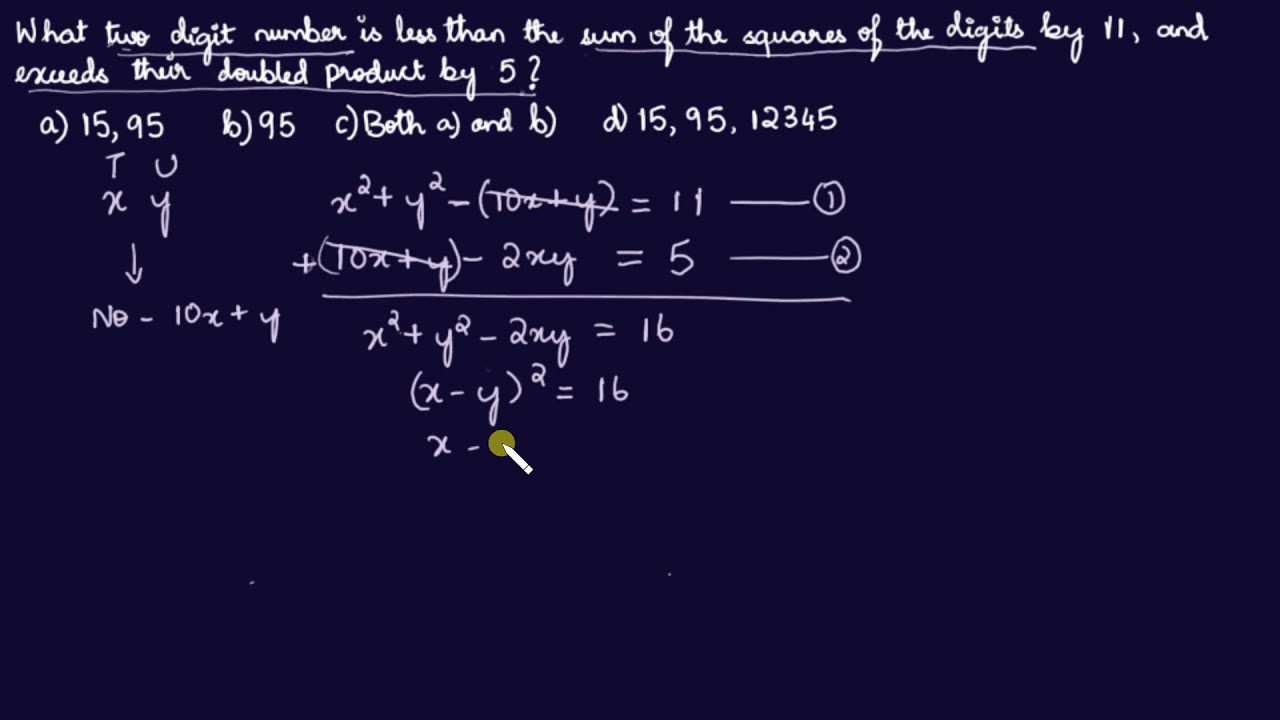 What two digit number is less than the sum of the squares of the digits by 11, and
exceeds their doubled product by 5?
a) 15, 95 b) 95 c) Both a) and b) d) 15, 95, 12345
T U
x y
x² + y² - (10x + y) = 11 ——— ①
+ (10x + y) - 2xy = 5 ——— ②
No - 10x + y
x² + y² - 2xy = 16
(x - y)² = 16
x -